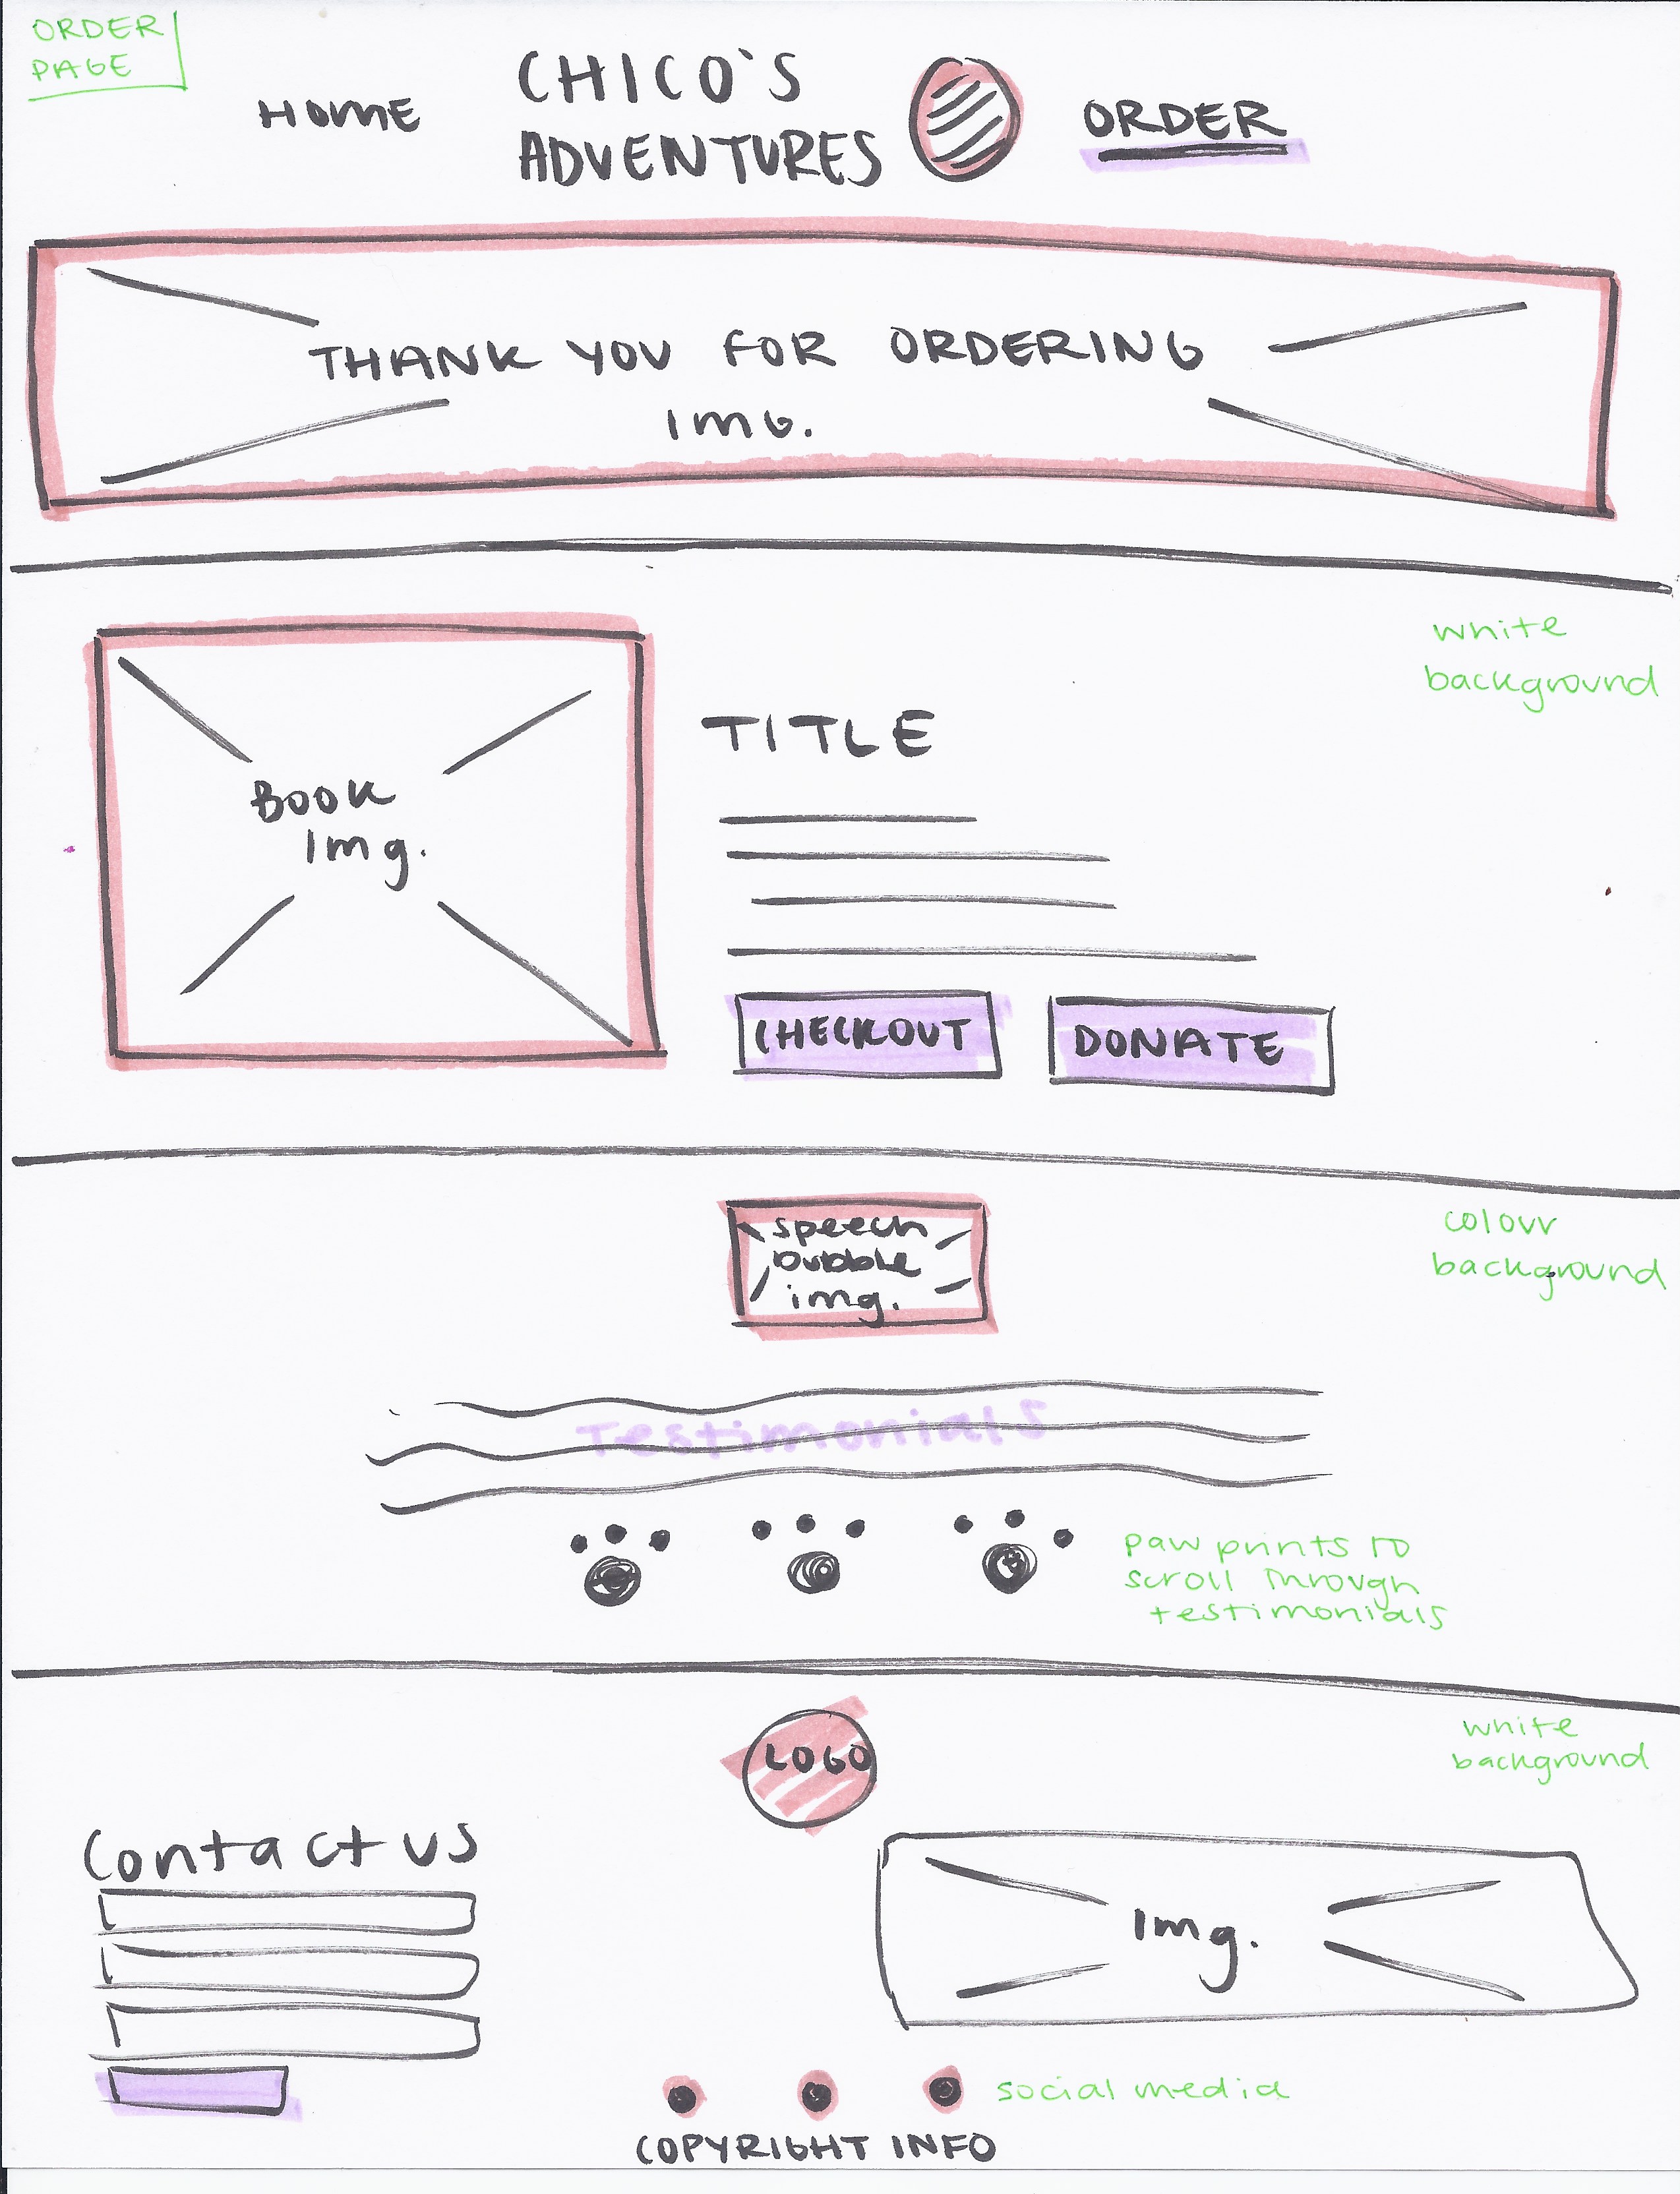 ORDER
PAGE
HOME
CHICO'S
ADVENTURES
ORDER
THANK YOU FOR ORDERING
IMG.
white
background
BOOK
Img.
TITLE
CHECKOUT
DONATE
colour
background
speech
bubble
img.
Testimonials
paw prints to
scroll through
testimonials
white
background
LOGO
Contact us
Img.
social media
COPYRIGHT INFO